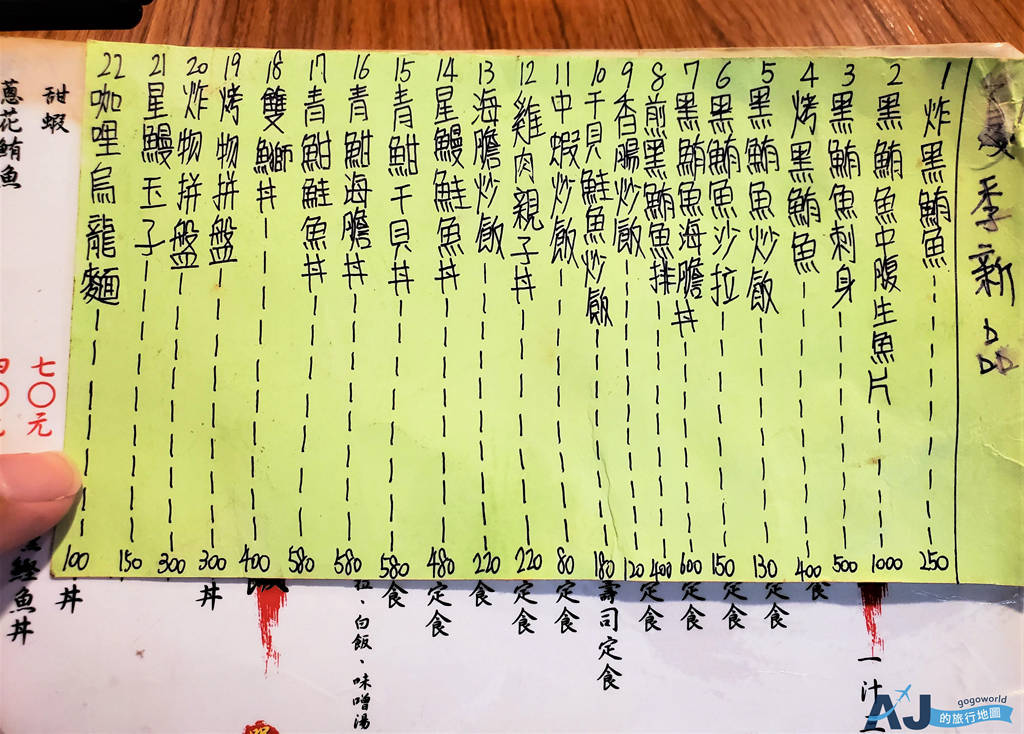 季新品
1 炸黑鮪魚 250
2 黑鮪魚中腹生魚片 1000
3 黑鮪魚刺身 500
4 烤黑鮪魚 400
5 黑鮪魚炒飯 130
6 黑鮪魚沙拉 150
7 黑鮪魚海膽丼 600
8 煎黑鮪魚排 400
9 香腸炒飯 120
10 干貝鮭魚炒飯 180
11 中蝦炒飯 80
12 雞肉親子丼 220
13 海膽炒飯 220
14 星鰻鮭魚丼 480
15 青魽干貝丼 580
16 青魽海膽丼 580
17 青魽鮭魚丼 580
18 雙鰤丼 400
19 烤物拼盤 300
20 炸物拼盤 300
21 星鰻玉子 150
22 咖哩烏龍麵 100
甜蝦 七〇元
蔥花鮪魚
一汁
食
定食
定食
定食
定食
壽司定食
定食
定食
食
定食
食
白飯、味噌湯
丼
丼
鰹魚丼
AJ
gogoworld
的旅行地圖